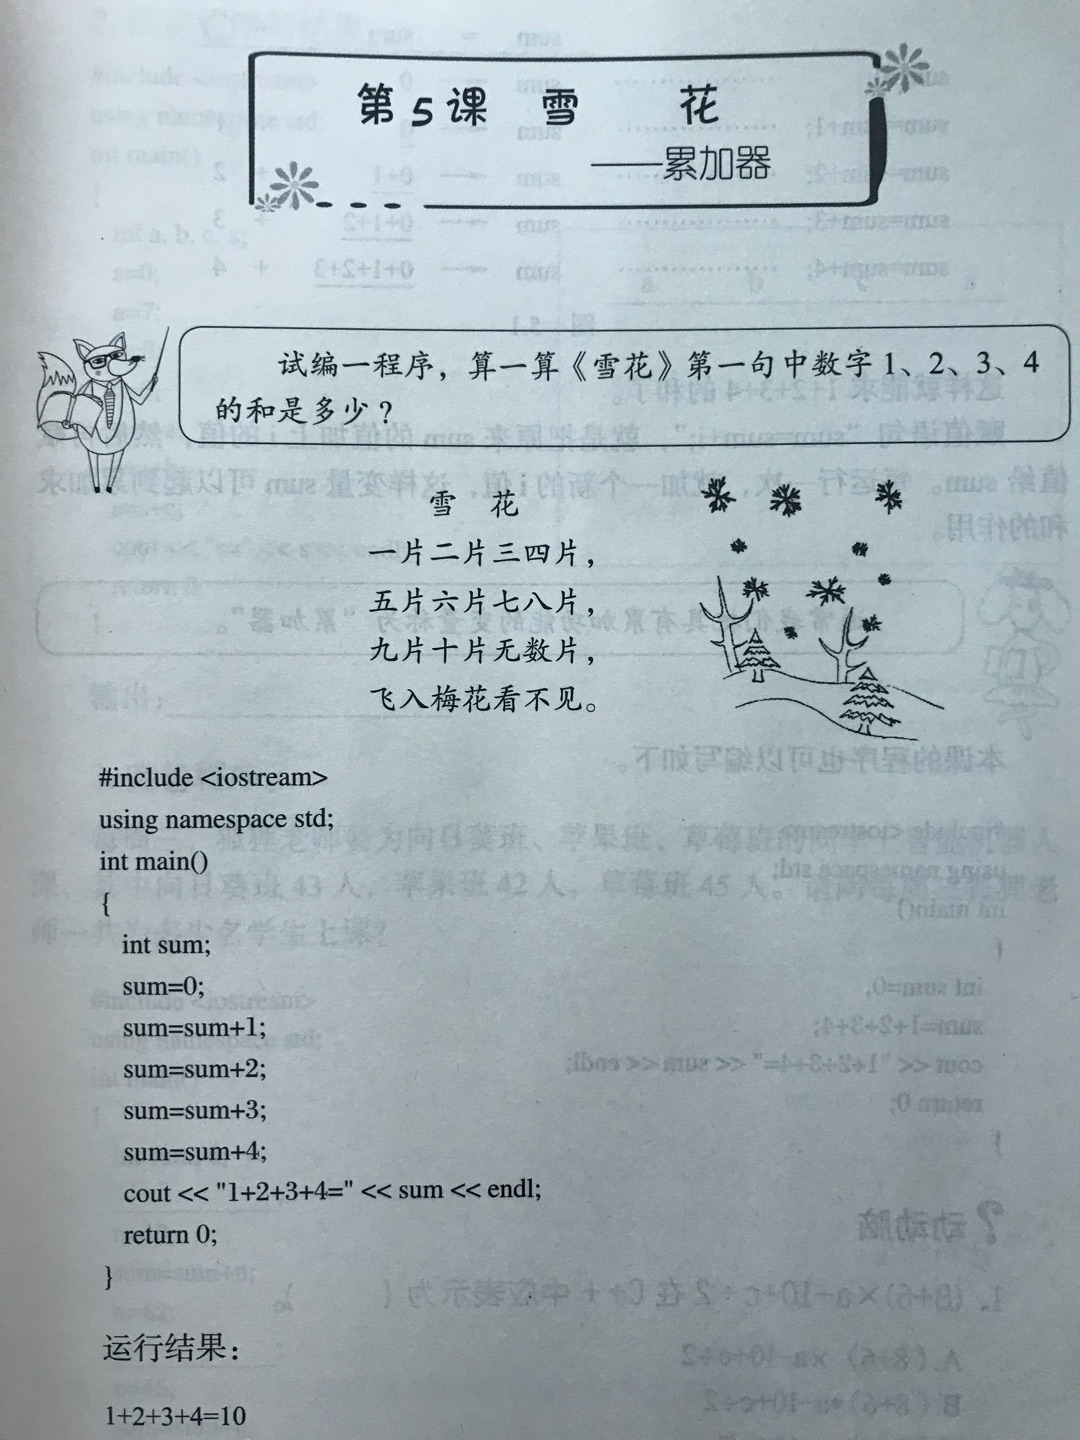 第5课 雪 花
——累加器
试编一程序，算一算《雪花》第一句中数字1、2、3、4
的和是多少？
雪 花
一片二片三四片，
五片六片七八片，
九片十片无数片，
飞入梅花看不见。
#include <iostream>
using namespace std;
int main()
{
int sum;
sum=0;
sum=sum+1;
sum=sum+2;
sum=sum+3;
sum=sum+4;
cout << "1+2+3+4=" << sum << endl;
return 0;
}
运行结果：
1+2+3+4=10